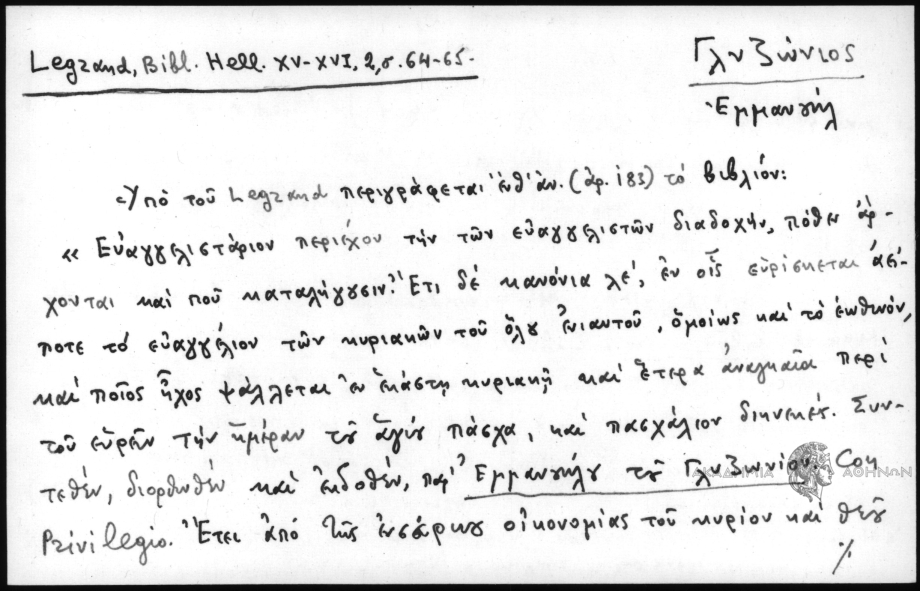 Legrand, Bibl. Hell. XV-XVI, 2, σ. 64-65.
Γλυζώνιος
Ἐμμανουήλ
Ὑπό τοῦ Legrand περιγράφεται ἐνθ' ἀν. (ἀρ. 183) τό βιβλίον:
« Εὐαγγελιστάριον περιέχον τήν τῶν εὐαγγελιστῶν διαδοχήν, πόθεν ἄρ-
χονται καί ποῦ καταλήγουσιν. Ἔτι δέ κανόνια λέ, ἐν οἷς εὑρίσκεται ἀεί-
ποτε τό εὐαγγέλιον τῶν κυριακῶν τοῦ ὅλου ἐνιαυτοῦ, ὁμοίως καί τό ἑωθινόν,
καί ποῖος ἦχος ψάλλεται ἐν ἑκάστῃ κυριακῇ καί ἕτερα ἀναγκαῖα περί
τοῦ εὑρεῖν τήν ἡμέραν τοῦ ἁγίου πάσχα, καί πασχάλιον διηνεκές. Συν-
τεθέν, διορθωθέν καί ἐκδοθέν, παρ' Ἐμμανουήλου τοῦ Γλυζωνίου. Con
Privilegio. Ἔτει ἀπό τῆς ἐνσάρκου οἰκονομίας τοῦ κυρίου καί θεοῦ
./.
ΑΚΑΔΗΜΙΑ ΑΘΗΝΩΝ